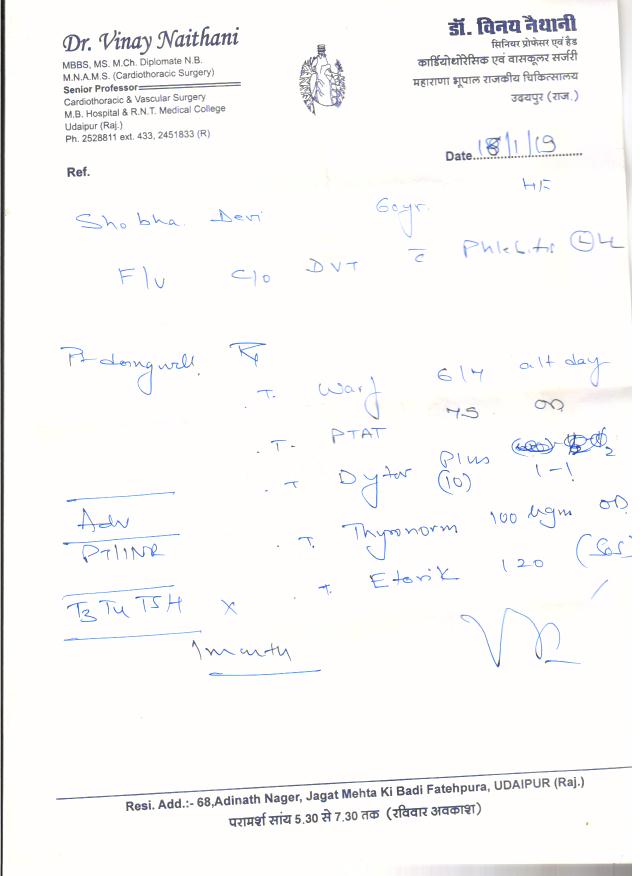 Dr. Vinay Naithani
MBBS, MS. M.Ch. Diplomate N.B.
M.N.A.M.S. (Cardiothoracic Surgery)
Senior Professor
Cardiothoracic & Vascular Surgery
M.B. Hospital & R.N.T. Medical College
Udaipur (Raj.)
Ph. 2528811 ext. 433, 2451833 (R)
डॉ. विनय नैथानी
सिनियर प्रोफेसर एवं हैड
कार्डियोथोरेसिक एवं वासकूलर सर्जरी
महाराणा भूपाल राजकीय चिकित्सालय
उदयपुर (राज.)
Date 18/1/19
Ref.
Shobha Devi 60yr.
F/U C/O DVT c̄ Phlebitis Ⓛ LL
Pt doing well. Rx
T. Warf 6/4 alt day
T. PTAT 75 OD
T Dytor Plus
(10) 1-1
Adv
PT/INR
T. Thyronorm 100 µgm OD
T. Etorik 120 (SOS)
T3 T4 TSH x
1 month
Resi. Add.:- 68,Adinath Nager, Jagat Mehta Ki Badi Fatehpura, UDAIPUR (Raj.)
परामर्श सांय 5.30 से 7.30 तक (रविवार अवकाश)